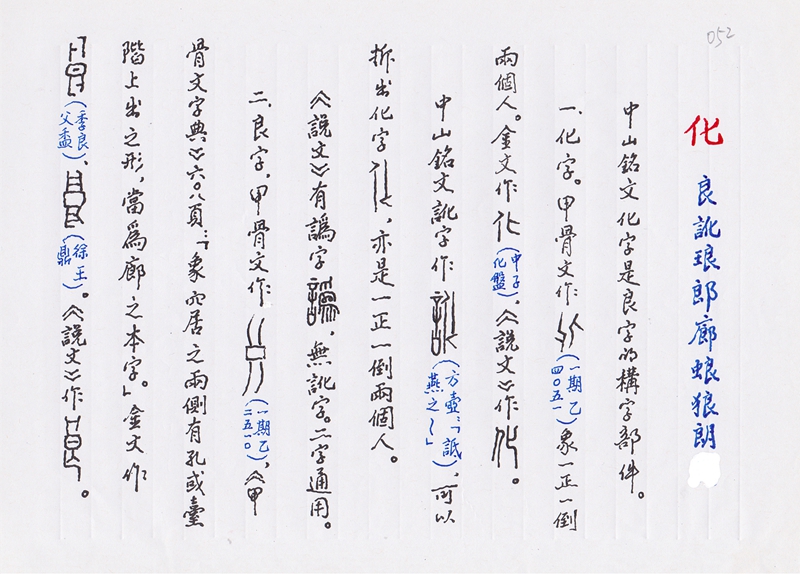 052
化 良訛琅郎廊蜋狼朗
中山銘文化字是良字的構字部件。
一、化字。甲骨文作(一期乙四〇五一)象一正一倒
兩個人。金文作(甲子化盤),《說文》作。
中山銘文訛字作(方壺:「詆燕之~」),可以
拆出化字,亦是一正一倒兩個人。
《說文》有譌字,無訛字。二字通用。
二、良字,甲骨文作(一期乙二五一〇),《甲
骨文字典》六〇八頁:「象穴居之兩側有孔或臺
階上出之形,當爲廊之本字」。金文作
(季良父盉)、(徐王鼎)。《說文》作。